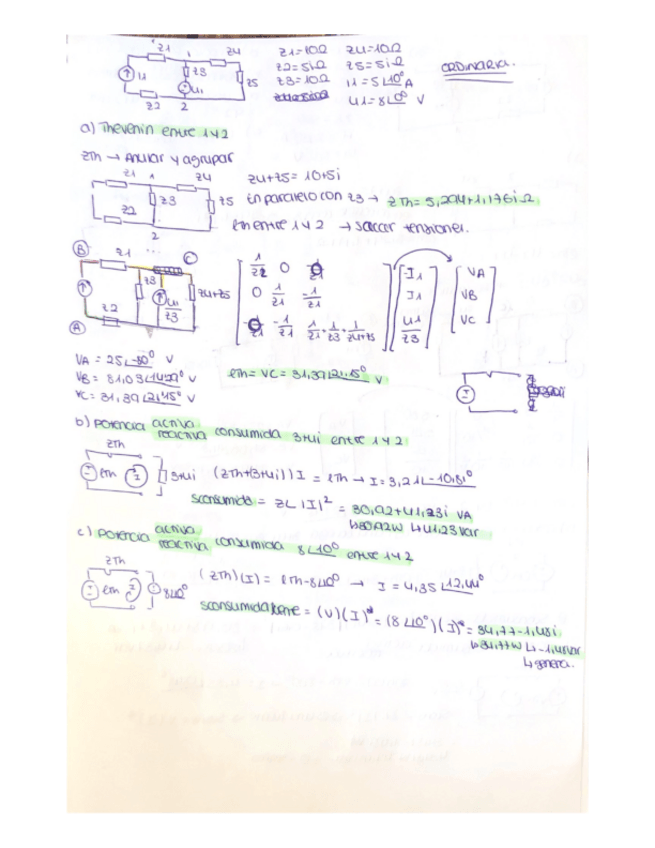 Z1 1 Z4 Z1=10Ω Z4=10Ω
I1 Z3 Z5 Z2=5iΩ Z5=5iΩ ORDINARIA.
U1 Z3=10Ω I1=5∠10° A
Z2 2 U1=8∠0° V
a) Thevenin entre 1 y 2
ZTh → Anular y agrupar
Z1 1 Z4 Z4+Z5 = 10+5i
Z3 Z5 En paralelo con Z3 → ZTh = 5,294+1,176i Ω
Z2 eth entre 1 y 2 → sacar tensiones.
2
B Z1 C
Z3 U1 Z4+Z5
Z3
A Z2
1/Z2 0 0 -I1 VA
0 1/Z1 -1/Z1 I1 VB
0 -1/Z1 1/Z1+1/Z3+1/Z4+Z5 U1/Z3 VC
VA = 25∠-80° V
VB = V
VC = 31,39∠21,15° V
eth = VC = 31,39∠21,15° V
b) Potencia activa reactiva consumida 3+4i entre 1 y 2
ZTh
eth I 3+4i (ZTh+(3+4i)) I = eTh → I = 3,21∠-10,81°
Sconsumida = ZL |I|² = 30,92+41,23i VA
↳30,92W ↳41,23Var
c) Potencia activa reactiva consumida 8∠10° entre 1 y 2
ZTh
eth I 8∠0° (ZTh)(I) = eTh-8∠10° → I = 4,35∠12,44°
= (V)(I)* = (8∠10°)(I)* = 34,77-1,48i
↳34,77W ↳-1,48Var
↳genera.